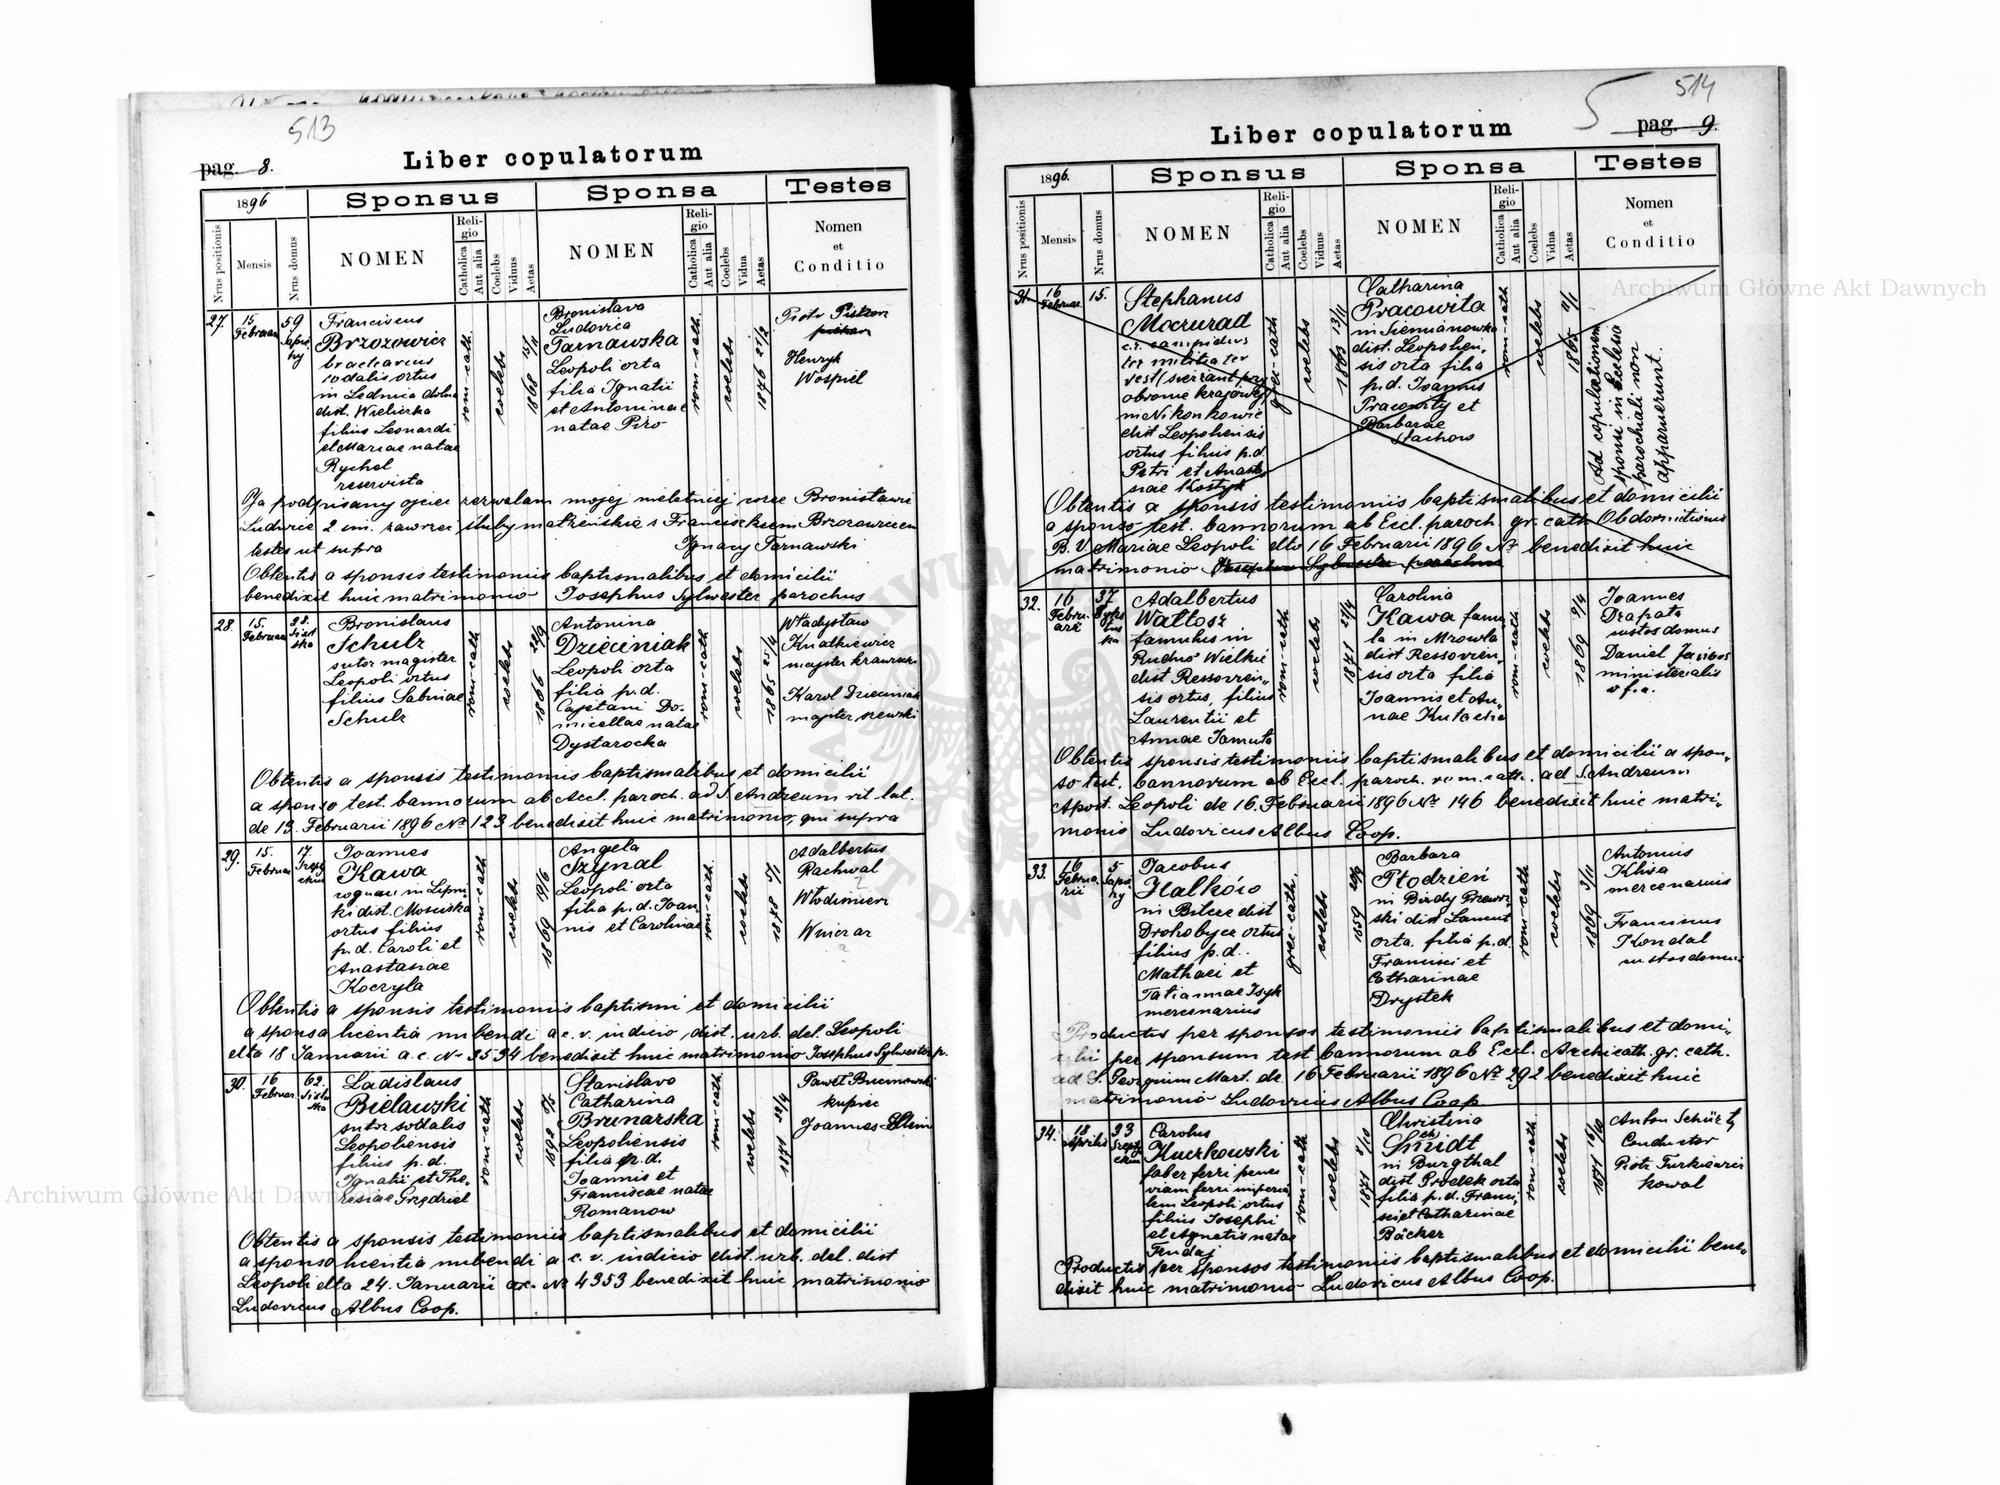 513
pag. 8.
Liber copulatorum
1896
Sponsus
Sponsa
Testes
Nrus positionis
Mensis
Nrus domus
NOMEN
Religio
Catholica
Aut alia
Coelebs
Viduus
Aetas
NOMEN
Religio
Catholica
Aut alia
Coelebs
Vidua
Aetas
Nomen
et
Conditio
27.
15
Februarii
59
Sapiehy
Franciscus
Brzozowicz
bractearius
sodalis ortus
in Lednica dolna
dist. Wieliczka
filius Leonardi
et Mariae natae
Rychel
reservista
rom-cath.
coelebs
1868 15/11
Bronislava
Ludovica
Tarnawska
Leopoli orta
filia Ignatii
et Antoninae
natae Piro
rom-cath.
coelebs
1876 21/2
Piotr Pistzon
Henryk
Wospiel
Ja podpisany ojciec zezwalam mojej nieletniej córce Bronisławie
Ludwice 2 im. zawrzeć śluby małżeńskie z Franciszkiem Brzozowiczem
testes ut supra
Ignacy Tarnawski
Obtentis a sponsis testimoniis baptismalibus et domicilii
benedixit huic matrimonio Josephus Sylwester parochus
28.
15.
Februarii
28.
Bronislaus
Schulz
sutor magister
Leopoli ortus
filius Sabinae
Schulz
rom-cath
coelebs
1866 22/9
Antonina
Dzieciniak
Leopoli orta
filia p.d.
Cajetani Do-
micellae natae
Dystarocka
rom-cath
coelebs
1865 25/4
Władysław
Knatkiewicz
majster krawiecki
Karol Dzieciniak
majster szewski
Obtentis a sponsis testimoniis baptismalibus et domicilii
a sponso test. bannorum ab Eccl. paroch. ad S. Andream rit. lat.
de 15. Februarii 1896 No 123 benedixit huic matrimonio, qui supra
29.
15.
Februar
17.
Joannes
Kawa
in Lipni-
ki dist. Mosciska
ortus filius
p.d. Caroli et
Anastasiae
Koczyla
rom-cath
coelebs
1869 19/6
Angela
Szynal
Leopoli orta
filia p.d. Joan-
nis et Carolinae
rom-cath.
coelebs
1878 5/1
Adalbertus
Rachwal
Włodzimierz
Winiczar
Obtentis a sponsis testimoniis baptismi et domicilii
a sponsa licentia nubendi a c. v. indicio dist. urb. del. Leopoli
dto 18 Januarii a.c. No 3534 benedixit huic matrimonio Josephus Sylwester p.
30.
16
Februar.
62.
Ladislaus
Bielawski
sutor sodalis
Leopoliensis
filius p.d.
Ignatii et The-
resiae Grędziel
rom-cath
coelebs
Stanislava
Catharina
Brunarska
Leopoliensis
filia p.d.
Joannis et
Franciscae natae
Romanow
rom-cath.
coelebs
1871 22/4
Paweł Bucmowski
kupiec
Joannes Ellein
Obtentis a sponsis testimoniis baptismalibus et domicilii
a sponso licentia nubendi a c. v. indicio dist. urb. del. dist
Leopoli dto 24. Januarii a.c. No 4353 benedixit huic matrimonio
Ludovicus Albus Coop.
5
514
pag. 9.
Liber copulatorum
1896.
Sponsus
Sponsa
Testes
Nrus positionis
Mensis
Nrus domus
NOMEN
Religio
Catholica
Aut alia
Coelebs
Viduus
Aetas
NOMEN
Religio
Catholica
Aut alia
Coelebs
Vidua
Aetas
Nomen
et
Conditio
31.
16
Februar.
15.
Stephanus
Mocrurad
c.r. campidux
ter militiae ter
rest (sierżant przy
obronie krajowej)
in Nikonkowic
dist Leopoliensis
ortus filius p.d.
Petri et Anasta-
siae Kostyk
grec-cath
coelebs
1863 13/11
Catharina
Pracowita
in Siemianowka
dist. Leopolien-
sis orta filia
p.d. Joannis
Pracowity et
Barbarae
Stachow
rom-cath
coelebs
Ad copulationem
sponsi in Ecclesia
parochiali non
apparuerunt.
Obtentis a sponsis testimoniis baptismalibus et domicilii
a sponso test. bannorum ab Eccl. paroch. gr. cath. Obdormitionis
B.V. Mariae Leopoli dto 16 Februarii 1896 No benedixit huic
matrimonio Josephus Sylwester parochus
32.
16
Februarii
37
Adalbertus
Wałtosz
famulus in
Rudno Wielkie
dist Ressovien-
sis ortus, filius
Laurentii et
Annae Jamuta
rom-cath
coelebs
1871 21/4
Carolina
Kawa famu-
la in Mrowla
dist Ressovien-
sis orta filia
Joannis et An-
nae Kutacha
rom-cath
coelebs
1869 9/4
Joannes
Drapata
custos domus
Daniel Janicos
ministerialis
Obtentis a sponsis testimoniis baptismalibus et domicilii a spon-
so test. bannorum ab Eccl. paroch. rom. cath. ad S. Andream
Apost. Leopoli de 16. Februarii 1896 No 146 benedixit huic matri-
monio Ludovicus Albus Coop.
33.
16
Februarii
5
Sapiehy
Jacobus
Hałków
in Bilcze dist
Drohobycz ortus
filius p.d.
Mathaei et
Tatiannae Isyk
mercenarius
grec-cath.
coelebs
1859
Barbara
Płodzień
in Birdy Przewor-
ski dist Lancut
orta filia p.d.
Francisci et
Catharinae
Drystek
rom-cath
coelebs
1869 3/11
Antonius
Kliza
mercenarius
Franciscus
Kondal
custos domus
Productis per sponsos testimoniis baptismalibus et domi-
cilii per sponsum test bannorum ab Eccl. Archicath. gr. cath.
ad S. Georgium Mart. de 16 Februarii 1896 No 292 benedixit huic
matrimonio Ludovicus Albus Coop
34.
18
Aprilis
33
Carolus
Kuczkowski
faber ferri penes
viam ferri imperia-
lem Leopoli ortus
filius Josephi
et Agnetis natae
Fendaj
rom-cath
coelebs
1871 8/10
Christina
Schmidt
in Burgthal
dist Grodek orta
filia p.d. Franci-
sci et Catharinae
Bäcker
rom-cath
coelebs
1871 16/10
Anton Schürtz
Conductor
Piotr Turkiewicz
kowal
Productis per sponsos testimoniis baptismalibus et domicilii bene-
dixit huic matrimonio Ludovicus Albus Coop.
Archiwum Główne Akt Dawnych
Archiwum Główne Akt Dawnych